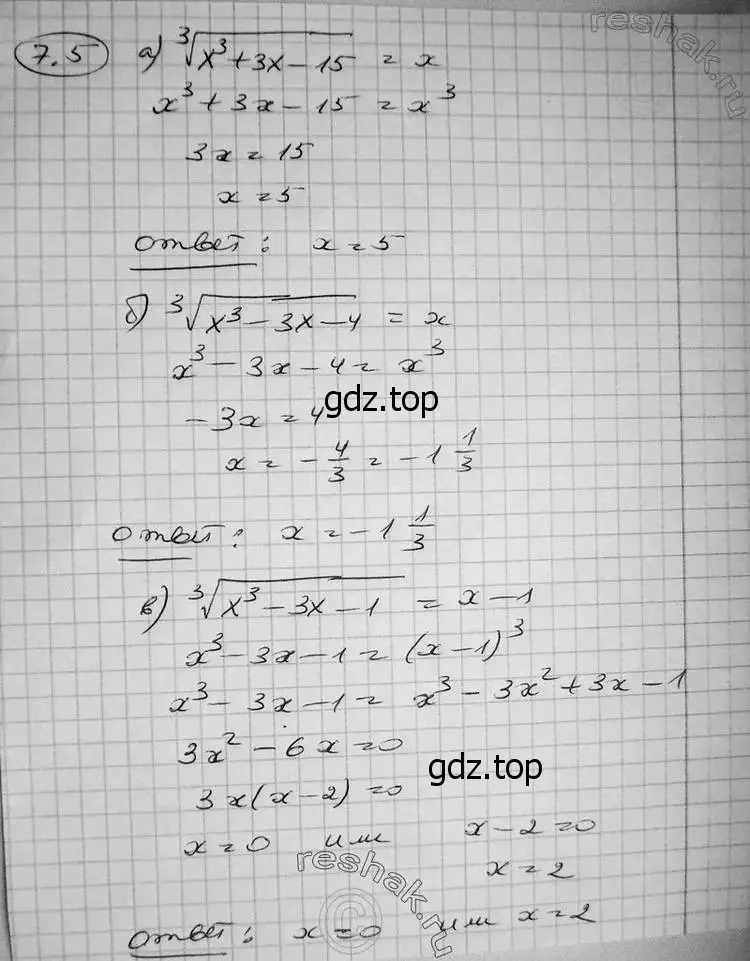 7.5 а) ∛(x³ + 3x − 15) = x
x³ + 3x − 15 = x³
3x = 15
x = 5
Ответ: x = 5
б) ∛(x³ − 3x − 4) = x
x³ − 3x − 4 = x³
−3x = 4
gdz.top
x = −4/3 = −1 1/3
Ответ: x = −1 1/3
в) ∛(x³ − 3x − 1) = x − 1
x³ − 3x − 1 = (x − 1)³
x³ − 3x − 1 = x³ − 3x² + 3x − 1
3x² − 6x = 0
gdz.top
3x(x − 2) = 0
x = 0 или x − 2 = 0
x = 2
Ответ: x = 0 или x = 2
reshak.ru
reshak.ru
©